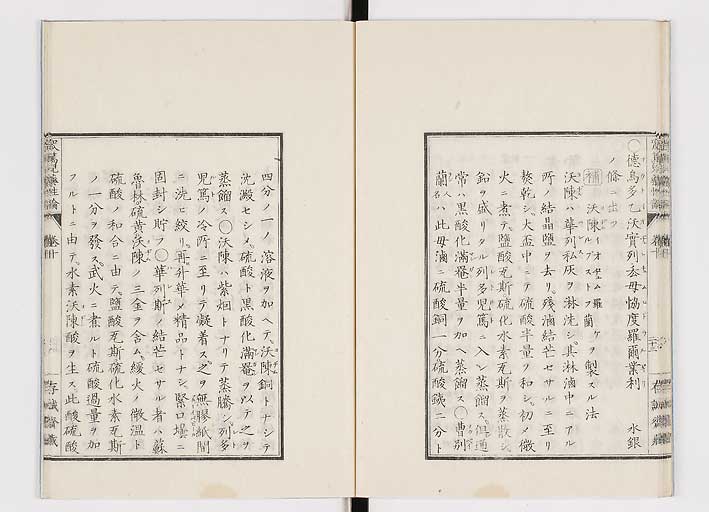 〇德鳥多乙沃實列去母恊度羅爾業利 水銀
ノ條ニ出ツ
補 沃陳 イオヂュム羅 ルブストフ蘭 ヲ製スル法
沃陳ハ華列私灰ヲ淋洗シ其淋滷中ニアル
所ノ結晶鹽ヲ去リ殘滷結芒セサルニ至リ
熬乾シ火盃中ニテ硫酸半量ヲ和シ初メ微
火ニ煮テ鹽酸瓦斯硫化水素瓦斯ヲ蒸散シ
鉛ヲ盛リタル列多児篤ニ入レ蒸餾ス但通
常ハ黒酸化滿俺半量ヲ加ヘ蒸餾ス〇曹別
蘭人名ハ此母滷ニ硫酸銅一分硫酸鐵二分ト
四分ノ一ノ溶液ヲ加ヘテ沃陳銅トナシテ
沈澱セシメ硫酸ト黒酸化滿俺ヲ以テ之ヲ
蒸餾ス〇沃陳ハ紫烟トナリテ蒸騰シ列多
児篤ノ冷所ニ至リテ凝着ス之ヲ無膠紙間
ニ洗ヒ絞リ再升華メ精品トナシ緊口壜ニ
固封シ貯フ〇華列斯ノ結芒セサル者ハ蘇
魯林硫黄沃陳ノ三金ヲ含ム緩火ノ微温ト
硫酸ノ和合ニ由テ鹽酸瓦斯硫化水素瓦斯
ノ一分ヲ發ス武火ニ煮ルト硫酸過量ヲ加
フルトニ由テ水素沃陳酸ヲ生ス此酸硫酸